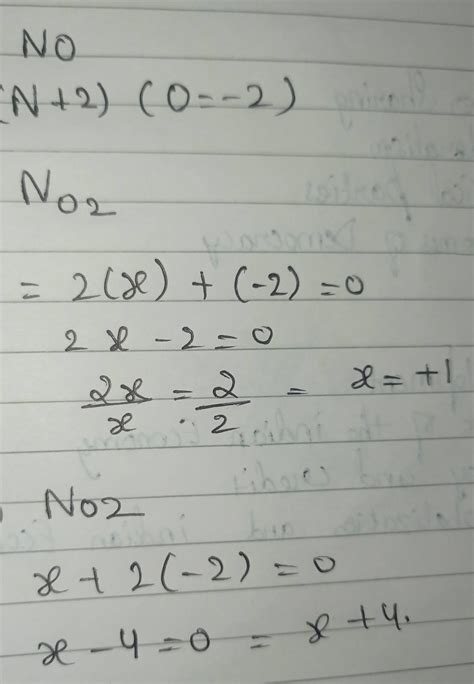 NO
(N+2) (O=-2)
NO2
= 2(x) + (-2) = 0
2x - 2 = 0
2x/x = 2/2 = x = +1
NO2
x + 2(-2) = 0
x - 4 = 0 = x + 4.